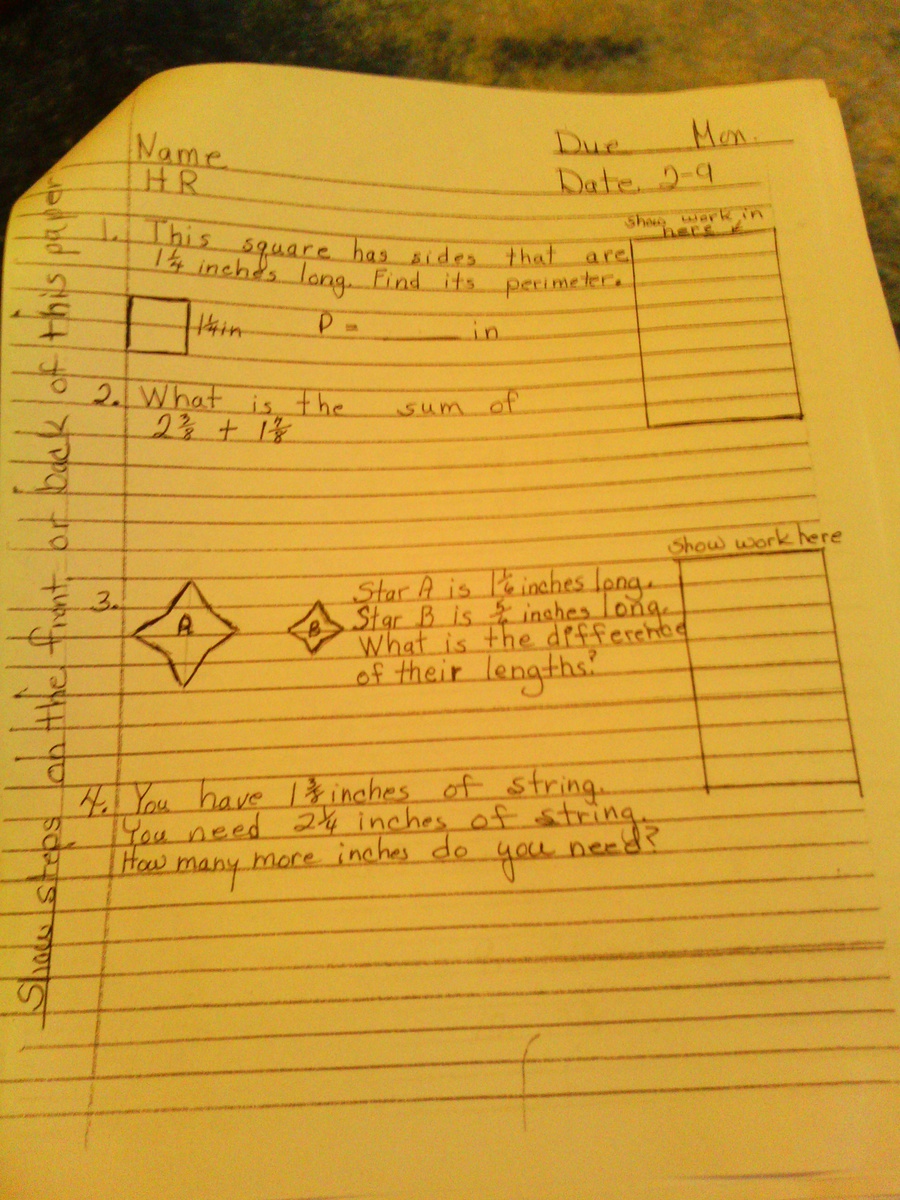 Name
HR
Due Mon.
Date 2-9
Show steps on the front or back of this paper
show work in
here ↙
1. This square has sides that are
1 1/4 inches long. Find its perimeter.
1 1/4 in P = ______ in
2. What is the sum of
2 3/8 + 1 7/8
show work here
3. A B
Star A is 1 1/6 inches long.
Star B is 5/6 inches long.
What is the difference
of their lengths?
4. You have 1 3/8 inches of string.
You need 2 1/4 inches of string.
How many more inches do you need?